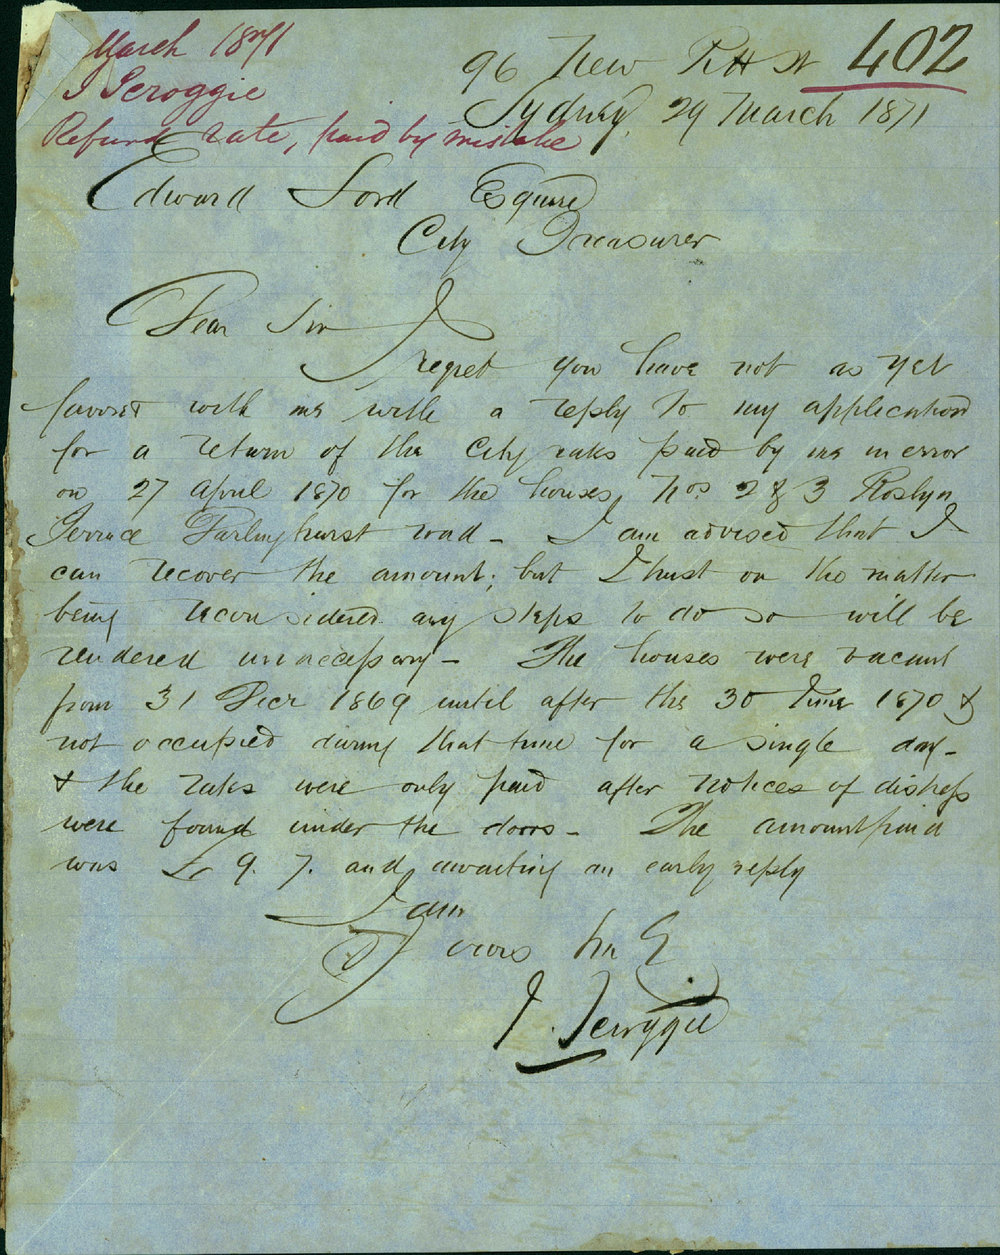 March 1871
J Scroggie
Refund rate, paid by mistake
402
96 New Pitt St
Sydney, 29 March 1871
Edward Lord Esquire
City Treasurer
Dear Sir
I regret you have not as yet
favored with me with a reply to my application
for a return of the City rates paid by me in error
on 27 April 1870 for the houses, Nos. 2 & 3 Roslyn
Terrace Darlinghurst road - I am advised that I
can recover the amount; but I trust on the matter
being reconsidered any steps to do so will be
rendered unnecessary - The houses were vacant
from 31 Decr 1869 until after the 30 June 1870 &
not occupied during that time for a single day -
& the rates were only paid after notices of distress
were found under the doors - The amount paid
was £ 9. 7. and awaiting an early reply
I am
Yours
J. Scroggie